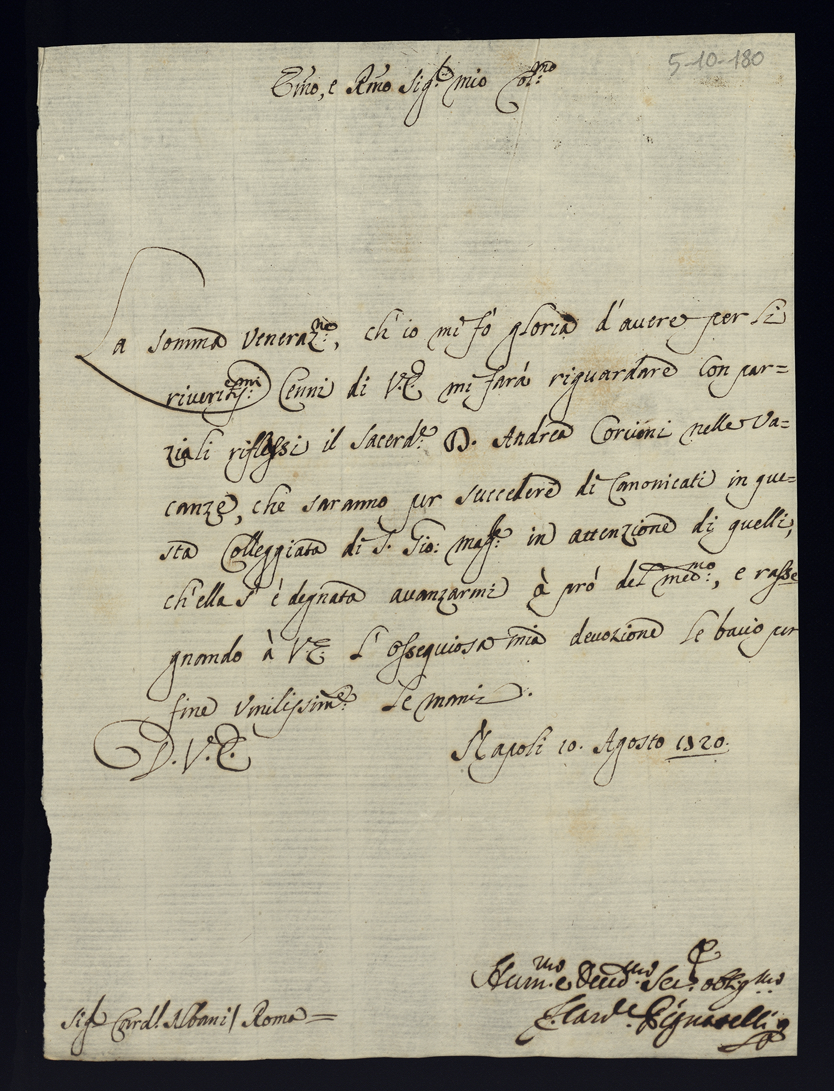 5-10-180
Emo, e Rmo Sig.r mio Col.mo
La somma Veneraz.ne, ch'io mi fò gloria d'avere per li
riveritiss.mi Cenni di V.E. mi farà riguardare con par=
ziali riflessi il Sacerd.e D. Andrea Corvini nelle Va=
canze, che saranno per succedere di Canonicati in que=
sta Colleggiata di S. Gio: Magg.re in attenzione di quelli,
ch'ella s'è degnata avanzarmi à prò del med.mo, e rasse
gnando à V.E. l'osseguiosa mia devozione le bacio per
fine umilissim.e le mani.
D. V.E. Napoli 10. Agosto 1720.
Hum.mo e Devd.mo Ser.r obblig.mo
F. Card.e Pignatelli
Sig.r Card.l Albani / Roma =